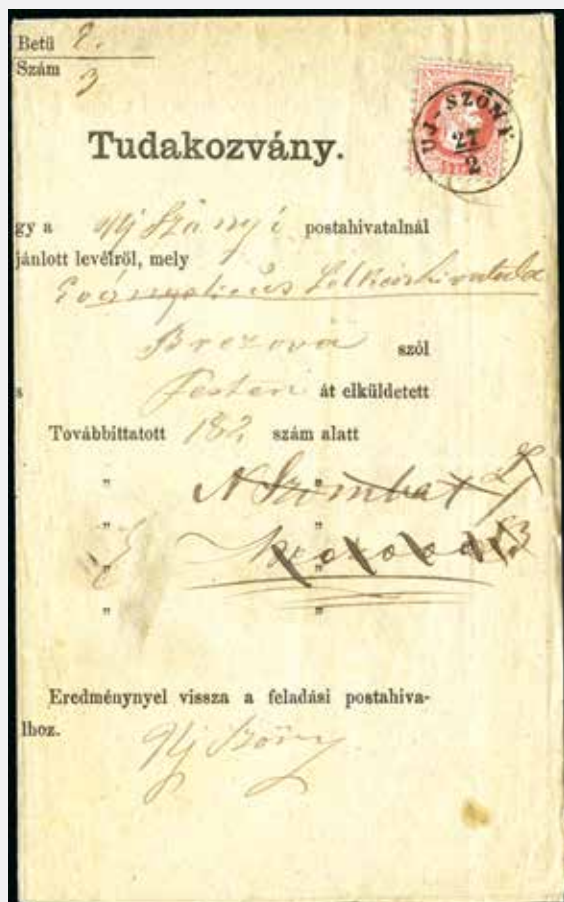 Betü 2.
Szám 3
UJ-SZÖNY
27
2
Tudakozvány.
gy a Uj Szőnyi postahivatalnál
jánlott levélről, mely
Evangelicus Lelkészhivatala
Brezová szól
s Pesten át elküldetett
Továbbíttatott 182 szám alatt
" N Szombat "
" "
" "
" "
Eredménynyel vissza a feladási postahiva-
lhoz.
Uj Szőny